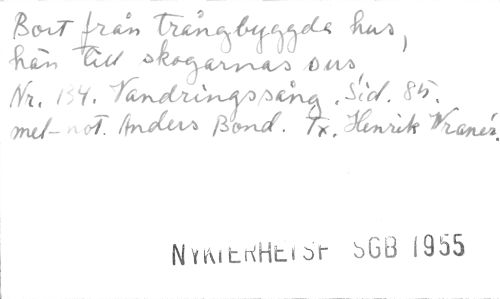 Bort från trångbyggda hus,
hän till skogarnas sus
Nr. 134. Vandringssång. Sid. 85.
mel-not. Anders Bond. Tx. Henrik Wranér.
NYKTERHETSF SGB 1955